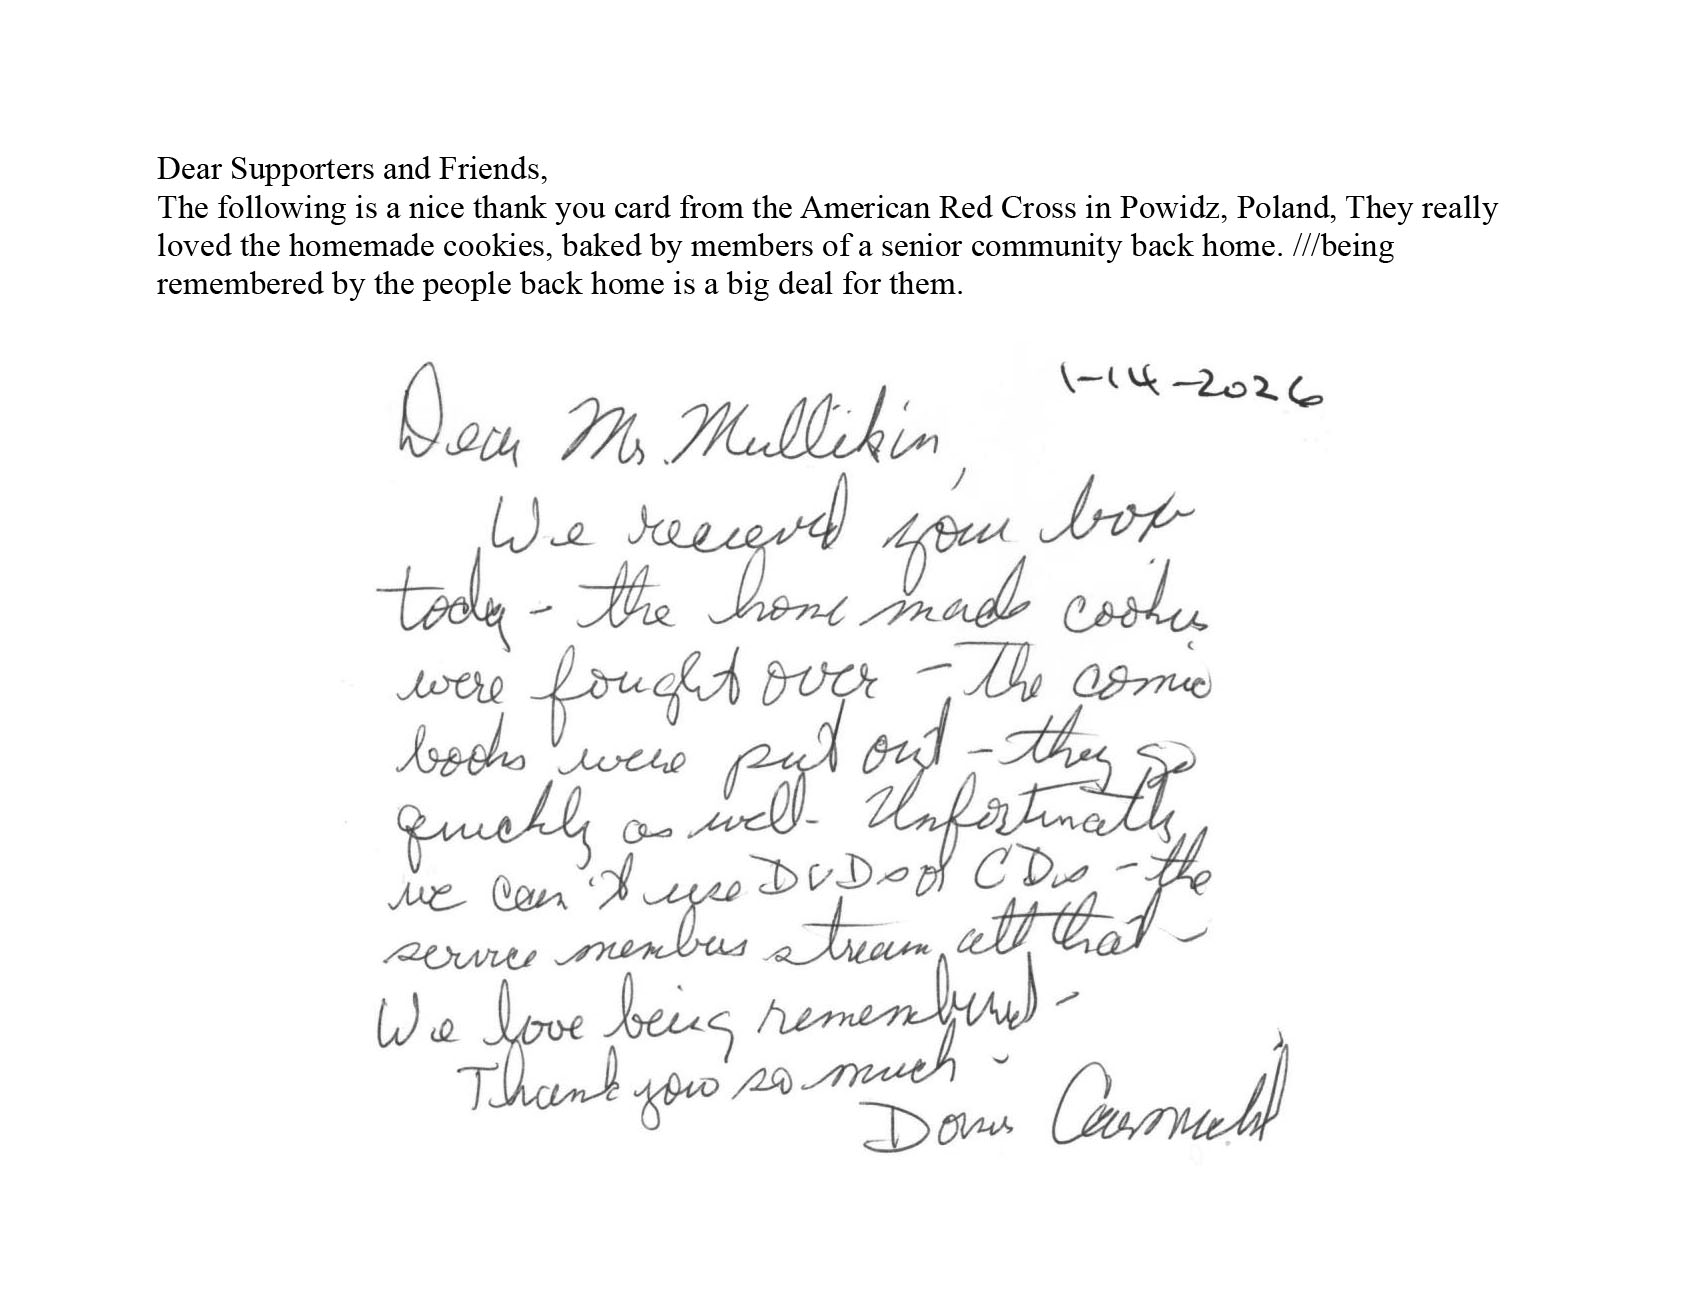 Dear Supporters and Friends,
The following is a nice thank you card from the American Red Cross in Powidz, Poland, They really
loved the homemade cookies, baked by members of a senior community back home. ///being
remembered by the people back home is a big deal for them.
1-14-2026
Dear Mr. Mullikin,
We received your box
today - the home made cookies
were fought over - The comic
books were put out - they go
quickly as well - Unfortunatly
we can't use DVDs or CDs - the
service members stream all that -
We love being remembered -
Thank you so much -